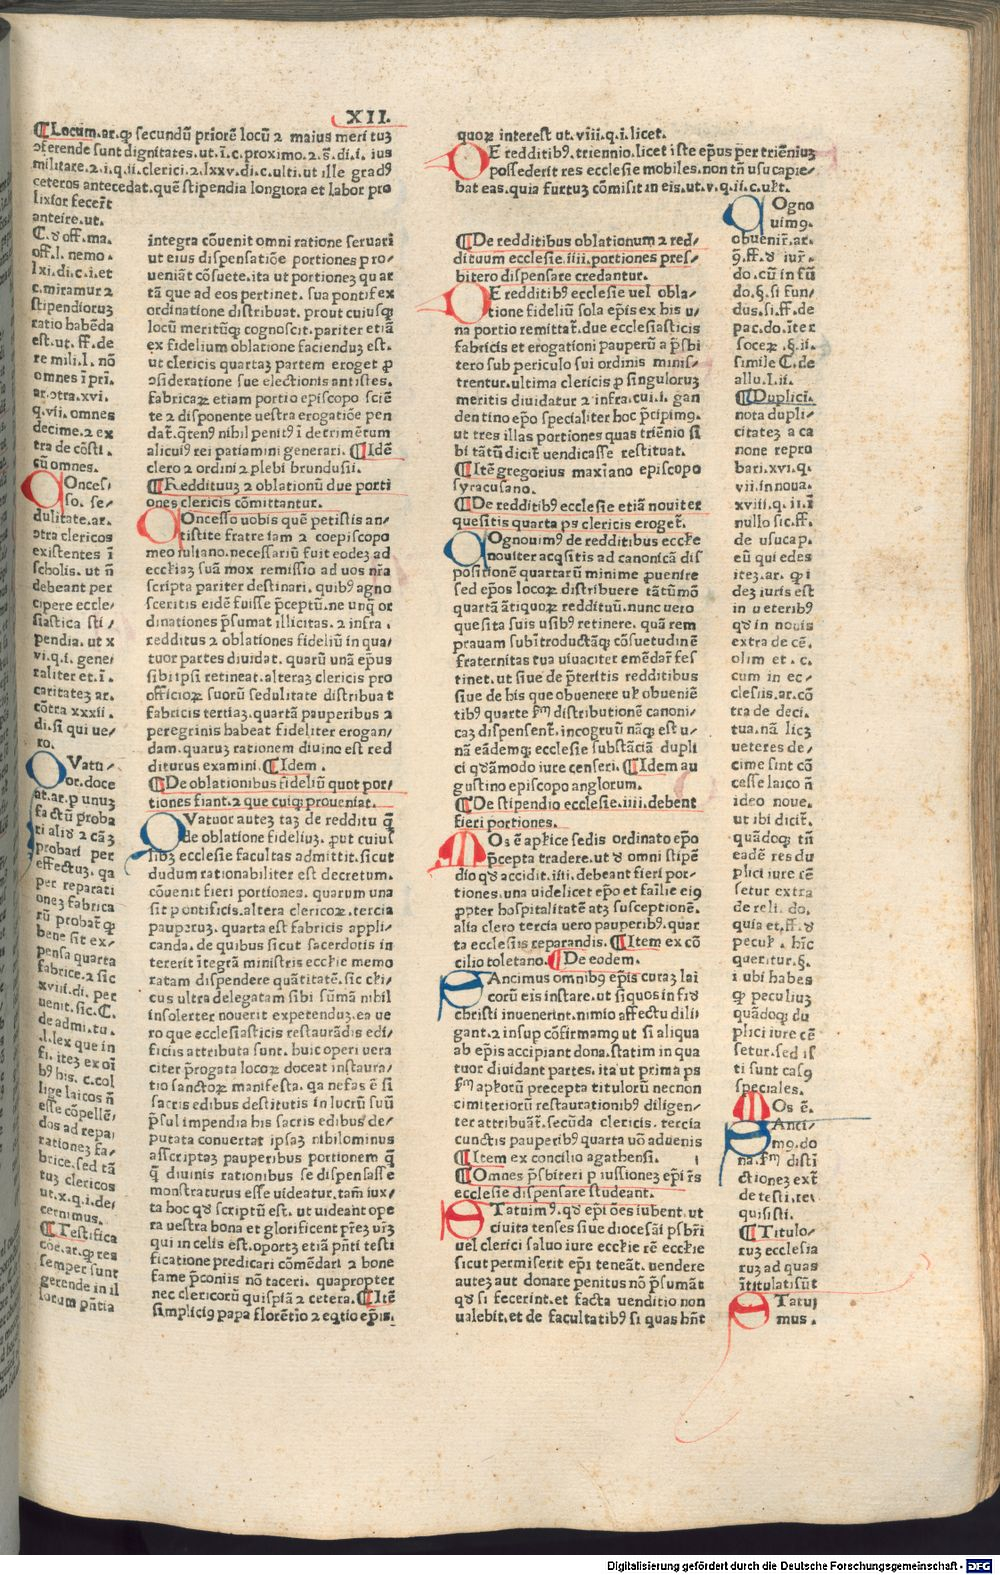 XII.
¶Locum.ar.ꝙ secundũ priorẽ locũ ⁊ maius merituꝫ
ↄferende sunt dignitates.ut.ĩ.c.proximo.⁊.s̃.di.i. ius
militare.⁊.i.q.ii.clerici.⁊.lxxv.di.c.ulti.ut ille gradꝰ
ceteros antecedat.quẽ stipendia longiora et labor pro
lixior fecer̃t
anteire.ut.
C.ꝺ off.ma.
off.l. nemo.
lxi.di.c.i.et
c.miramur ⁊
stipendioruꝫ
ratio habẽda
est.ut.ff.de
re mili.l. nõ
omnes ĩ pri.
ar.ↄtra.xvi.
q.vii.omnes
decime.⁊ ex
tra de cõsti.
cũ omnes.
Oncessi
so. se/
dulitate.ar.
ↄtra clericos
existentes ĩ
scholis. ut ñ
debeant per
cipere eccle/
siastica sti/
pendia. ut x
vi.q.i. gene
raliter et.ĩ.
caritateꝫ ar.
cõtra xxxii.
di.si qui ue/
ro.
Vatu/
or.doce
at.ar.p unuꝫ
factũ proba
ri aliꝺ ⁊ cãꝫ
probari per
effectuꝫ. qa
per reparati
oneꝫ fabrica
rũ probat᷑ ꝙ
bene sit ex/
pensa quarta
fabrice.⁊ sic
xviii.di. per
uenit.sic.C.
de admi.tu.
.l.lex que in
fi. iteꝫ ex oĩ
bꝰ his. c.col
lige laicos ñ
esse cõpellẽ/
dos ad repa
rationeꝫ fa/
brice.sed tã
tuꝫ clericos
ut.x.q.i.de/
cernimus.
¶Testifica
cõe.ar.ꝙ res
semper sunt
gerende in il
lorum p̃ntia
integra cõuenit omni ratione seruari
ut eius dispensatiõe portiones pro/
ueniãt cõsuete.ita ut portioneꝫ quar
tã que ad eos pertinet. sua pontifex
ordinatione distribuat. prout cuiusꝗ
locũ meritũꝗ cognoscit.pariter etiã
ex fidelium oblatione facienduꝫ est.
ut clericis quartaꝫ partem eroget ꝓ
ↄsideratione sue electionis antistes.
fabricaꝝ etiam portio episcopo sciẽ
te ⁊ disponente uestra erogatiõe pen
dat᷑.q̃tenꝰ nihil penitꝰ i detrimẽtum
alicuiꝰ rei patiamini generari. ¶Idẽ
clero ⁊ ordini ⁊ plebi brundusii.
¶Reddituuꝫ ⁊ oblationũ due porti
ones clericis cõmittantur.
Oncesso uobis quẽ petistis an/
tistite fratre iam ⁊ coepiscopo
meo iuliano.necessariũ fuit eodeꝫ ad
eccl̃iaꝫ suã mox remissio ad uos nr̃a
scripta pariter destinari. quibꝰ agno
sceritis eidẽ fuisse p̃ceptũ.ne unq̃ or
dinationes p̃sumat illicitas. ⁊ infra.
redditus ⁊ oblationes fideliũ in qua/
tuor partes diuidat. quarũ unã ep̃us
sibi ipsi retineat.alteraꝫ clericis pro
officioꝝ suorũ sedulitate distribuat
fabricis tertiaꝫ.quartã pauperibus ⁊
peregrinis habeat fideliter erogan/
dam.quaruꝫ rationem diuino est red
diturus examini. ¶Idem.
¶De oblationibus fideliũ quot por/
tiones fiant.⁊ que cuiꝗ proueniat.
Vatuor auteꝫ taꝫ de redditu q̃
de oblatione fideliuꝫ. ꝓut cuius
libꝫ ecclesie facultas admittit.sicut
dudum rationabiliter est decretum.
cõuenit fieri portiones. quarum una
sit pontificis.altera clericoꝝ.tercia
pauperuꝫ. quarta est fabricis appli/
canda.de quibus sicut sacerdotis in
tererit ĩtegrã ministris eccl̃ie memo
ratam dispendere quãtitatẽ.sic cl̃ri/
cus ultra delegatam sibi sũmã nihil
insolerter nouerit expetenduꝫ.ea ue
ro que ecclesiasticis restaurãdis edi/
ficiis attributa sunt. huic operi uera
citer p̃rogata locoꝝ doceat instaura/
tio sanctoꝝ manifesta. qa nefas ẽ si
sacris edibus destitutis in lucrũ suũ
p̃sul impendia his sacris edibus de/
putata conuertat ipsaꝫ nihilominus
asscriptaꝫ pauperibus portionem q̃
q̃ diuinis rationibus se dispensasse
monstraturus esse uideatur.tam̃ iux/
ta hoc qꝺ scriptũ est. ut uideant ope
ra uestra bona et glorificent p̃reꝫ ur̃ꝫ
qui in celis est.oportꝫ etiã p̃nti testi
ficatione predicari cõmẽdari ⁊ bone
fame p̃coniis nõ taceri. quapropter
nec clericorũ quispiã ⁊ cetera. ¶Itẽ
simpliciꝰ papa florẽtio ⁊ eqtio ep̃is.
quoꝝ interest ut.viii.q.i.licet.
E redditibꝰ.triennio.licet iste ep̃us per triẽniuꝫ
possederit res ecclesie mobiles.non tñ usucapie/
bat eas.quia furtuꝫ cõmisit in eis.ut.v.q.ii.c.ult.
¶De redditibus oblationum ⁊ red/
dituum ecclesie.iiii.portiones pres/
bitero dispensare credantur.
E redditibꝰ ecclesie uel obla/
tione fideliũ sola ep̃is ex his u/
na portio remittat᷑.due ecclesiasticis
fabricis et erogationi pauperũ a p̃sbi
tero sub periculo sui ordinis minis/
trentur.ultima clericis ꝓ singuloruꝫ
meritis diuidatur ⁊ infra.cui.i. gau
dentino ep̃o specialiter hoc p̃cipimꝰ.
ut tres illas portiones quas triẽnio si
bi tãtũ dicit uendicasse restituat.
¶Itẽ gregorius maxiano episcopo
syracusano.
¶De redditibꝰ ecclesie etiã nouiter
quesitis quarta ps clericis eroget᷑.
Ognouimꝰ de redditibus eccl̃ie
nouiter acq̃sitis ad canonicã dis
positionẽ quartarũ minime ꝓuenire
sed ep̃os locoꝝ distribuere tãtũmõ
quartã ãtiquoꝝ reddituũ.nunc uero
quesita suis usibꝰ retinere. quã rem
prauam subĩtroductãꝗ cõsuetudinẽ
fraternitas tua uiuaciter emẽdar̃ fes
tinet.ut siue de p̃teritis redditibus
siue de his que obuenere ul̃ obueniẽ
tibꝰ quarte ẜm distributionẽ canoni/
caꝫ dispensent᷑.incogruũ nãꝗ est.u/
nã eãdemꝗ ecclesie substãciã dupli
ci qꝺãmodo iure censeri. ¶Idem au
gustino episcopo anglorum.
¶De stipendio ecclesie.iiii.debent
fieri portiones.
Os ẽ ap̃l̃ice sedis ordinato ep̃o
p̃cepta tradere.ut ꝺ omni stipẽ
dio qꝺ accidit.iiii.debeant fieri por/
tiones.una uidelicet ep̃o et fãilie eiꝰ
ꝓpter hospitalitatẽ atꝫ susceptionẽ.
alia clero tercia uero pauperibꝰ.quar
ta ecclesiis reparandis. ¶Item ex cõ
cilio toletano. ¶De eodem.
Ancimus omnibꝰ ep̃is curaꝫ lai
corũ eis instare.ut si quos in fiꝺ
christi inuenerint.nimio affectu dili
gant.⁊ insup cõfirmamꝰ ut si aliqua
ab ep̃is accipiant dona.statim in qua
tuor diuidant partes. ita ut prima ps
ẜm ap̃l̃orũ precepta titulorũ necnon
cimiteriorũ restaurationibꝰ diligen/
ter attribuãt᷑.secũda clericis. tercia
cunctis pauperibꝰ quarta uõ aduenis
¶Item ex concilio agathensi.
¶Omnes p̃sbiteri p iussionẽꝫ ep̃i r̃s
ecclesie dispensare studeant.
Tatuimꝰ.qꝺ ep̃i ões iubent. ut
ciuita tenses siue diocesãi psbr̃i
uel clerici saluo iure eccl̃ie rẽ eccl̃ie
sicut permiserit ep̃i teneãt. uendere
auteꝫ aut donare penitus nõ p̃sumãt
qꝺ si fecerint.et facta uenditio non
ualebit.et de facultatibꝰ si quas hñt
Ogno
uimꝰ.
obuenir̃.ar.
ꝯ.ff.ꝺ iur̃.
do.cũ in fũ
do.§.si fun/
dus.si.ff.de
pac.do.ĩter
soceꝝ.§.ii.
simile C.de
allu.l.ii.
¶Duplici.
nota dupli/
citateꝫ a ca
none repro
bari.xvi.q.
vii.in noua.
xviii.q.ii.ĩ
nullo sic.ff.
de usucap.
eũ qui edes
iteꝫ.ar. ꝙ i
deꝫ iuris est
in ueteribꝰ
qꝺ in nouis
extra de cẽ.
olim et.c.
cum in ec/
clesiis.ar.cõ
tra de deci.
tua.nã licꝫ
ueteres de/
cime sint cõ
cesse laico ñ
ideo noue.
ut ibi dicit᷑.
quãdoꝗ tñ
eadẽ res du
plici iure cẽ
setur extra
de reli. do.
quia et.ff.ꝺ
pecul̃. hĩc
queritur.§.
i ubi habes
ꝙ peculiuꝫ
quãdoꝗ du
plici iure cẽ
setur.sed is
ti sunt casꝰ
speciales.
Os ẽ.
Anci/
mꝰ.do
na.ẜm disti
ctioneꝫ ext̃
de testi.re/
quisisti.
¶Titulo/
ruꝫ ecclesia
ruꝫ ad quas
ĩtitulati sũt
Tatui
mus.
Digitalisierung gefördert durch die Deutsche Forschungsgemeinschaft - DFG